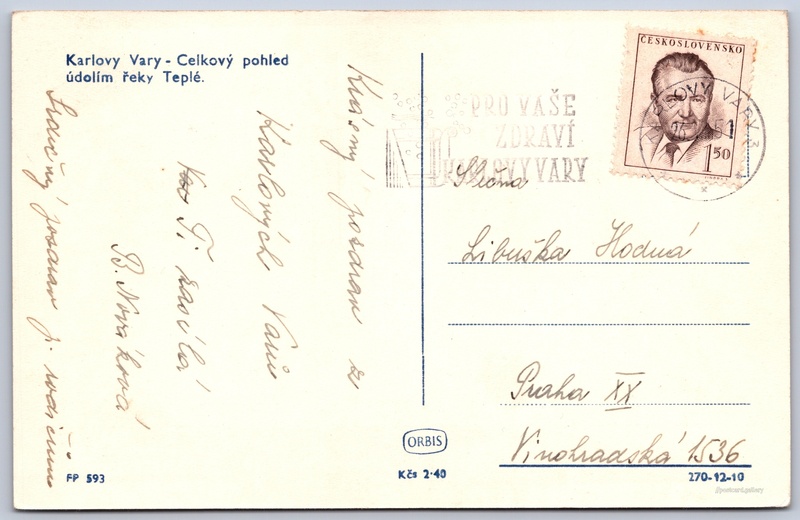 Karlovy Vary - Celkový pohled
údolím řeky Teplé.
Krásný pozdrav z
Karlových Varů
Ti zasílá
B. Nováková
Srdečný pozdrav p. rodičům
FP 593
ORBIS
Kčs 2·40
PRO VAŠE
ZDRAVÍ
KARLOVY VARY
ČESKOSLOVENSKO
1 50
KARLOVY VARY 3
Slečna
Libuška Hodná
Praha XX
Vinohradská 1536
270-12-10
@postcard.gallery